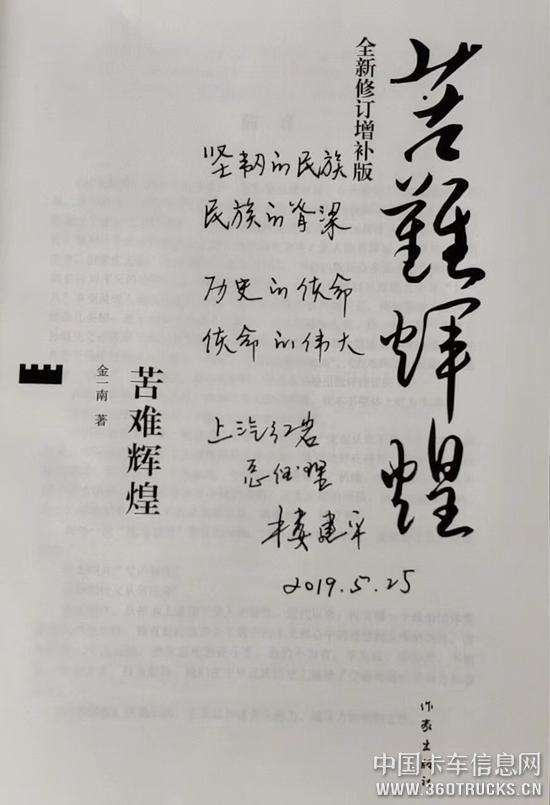 苦難輝煌
全新修订增补版
坚韧的民族
民族的脊梁
历史的使命
使命的伟大
上汽红岩
总经理
楼建平
2019.5.25
苦难辉煌
金一南 著
作家出版社
中国卡车信息网
WWW.360TRUCKS.CN